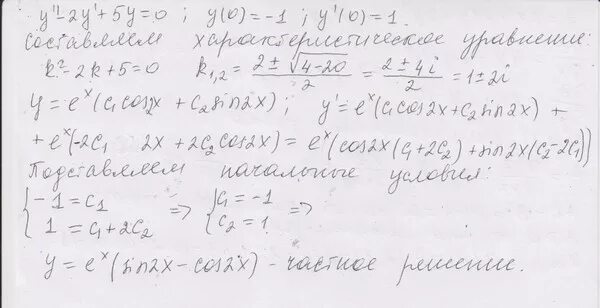 y'' - 2y' + 5y = 0 ; y(0) = -1 ; y'(0) = 1.
Составляем характеристическое уравнение:
k² - 2k + 5 = 0 k₁,₂ = (2 ± √(4-20))/2 = (2 ± 4i)/2 = 1 ± 2i
y = eˣ(c₁cos2x + c₂sin2x) ; y' = eˣ(c₁cos2x + c₂sin2x) +
+ eˣ(-2c₁ 2x + 2c₂cos2x) = eˣ(cos2x(c₁ + 2c₂) + sin2x(c₂ - 2c₁))
Подставляем начальные условия:
{ -1 = c₁ => { c₁ = -1 =>
{ 1 = c₁ + 2c₂ { c₂ = 1
y = eˣ(sin2x - cos2x) - частное решение.